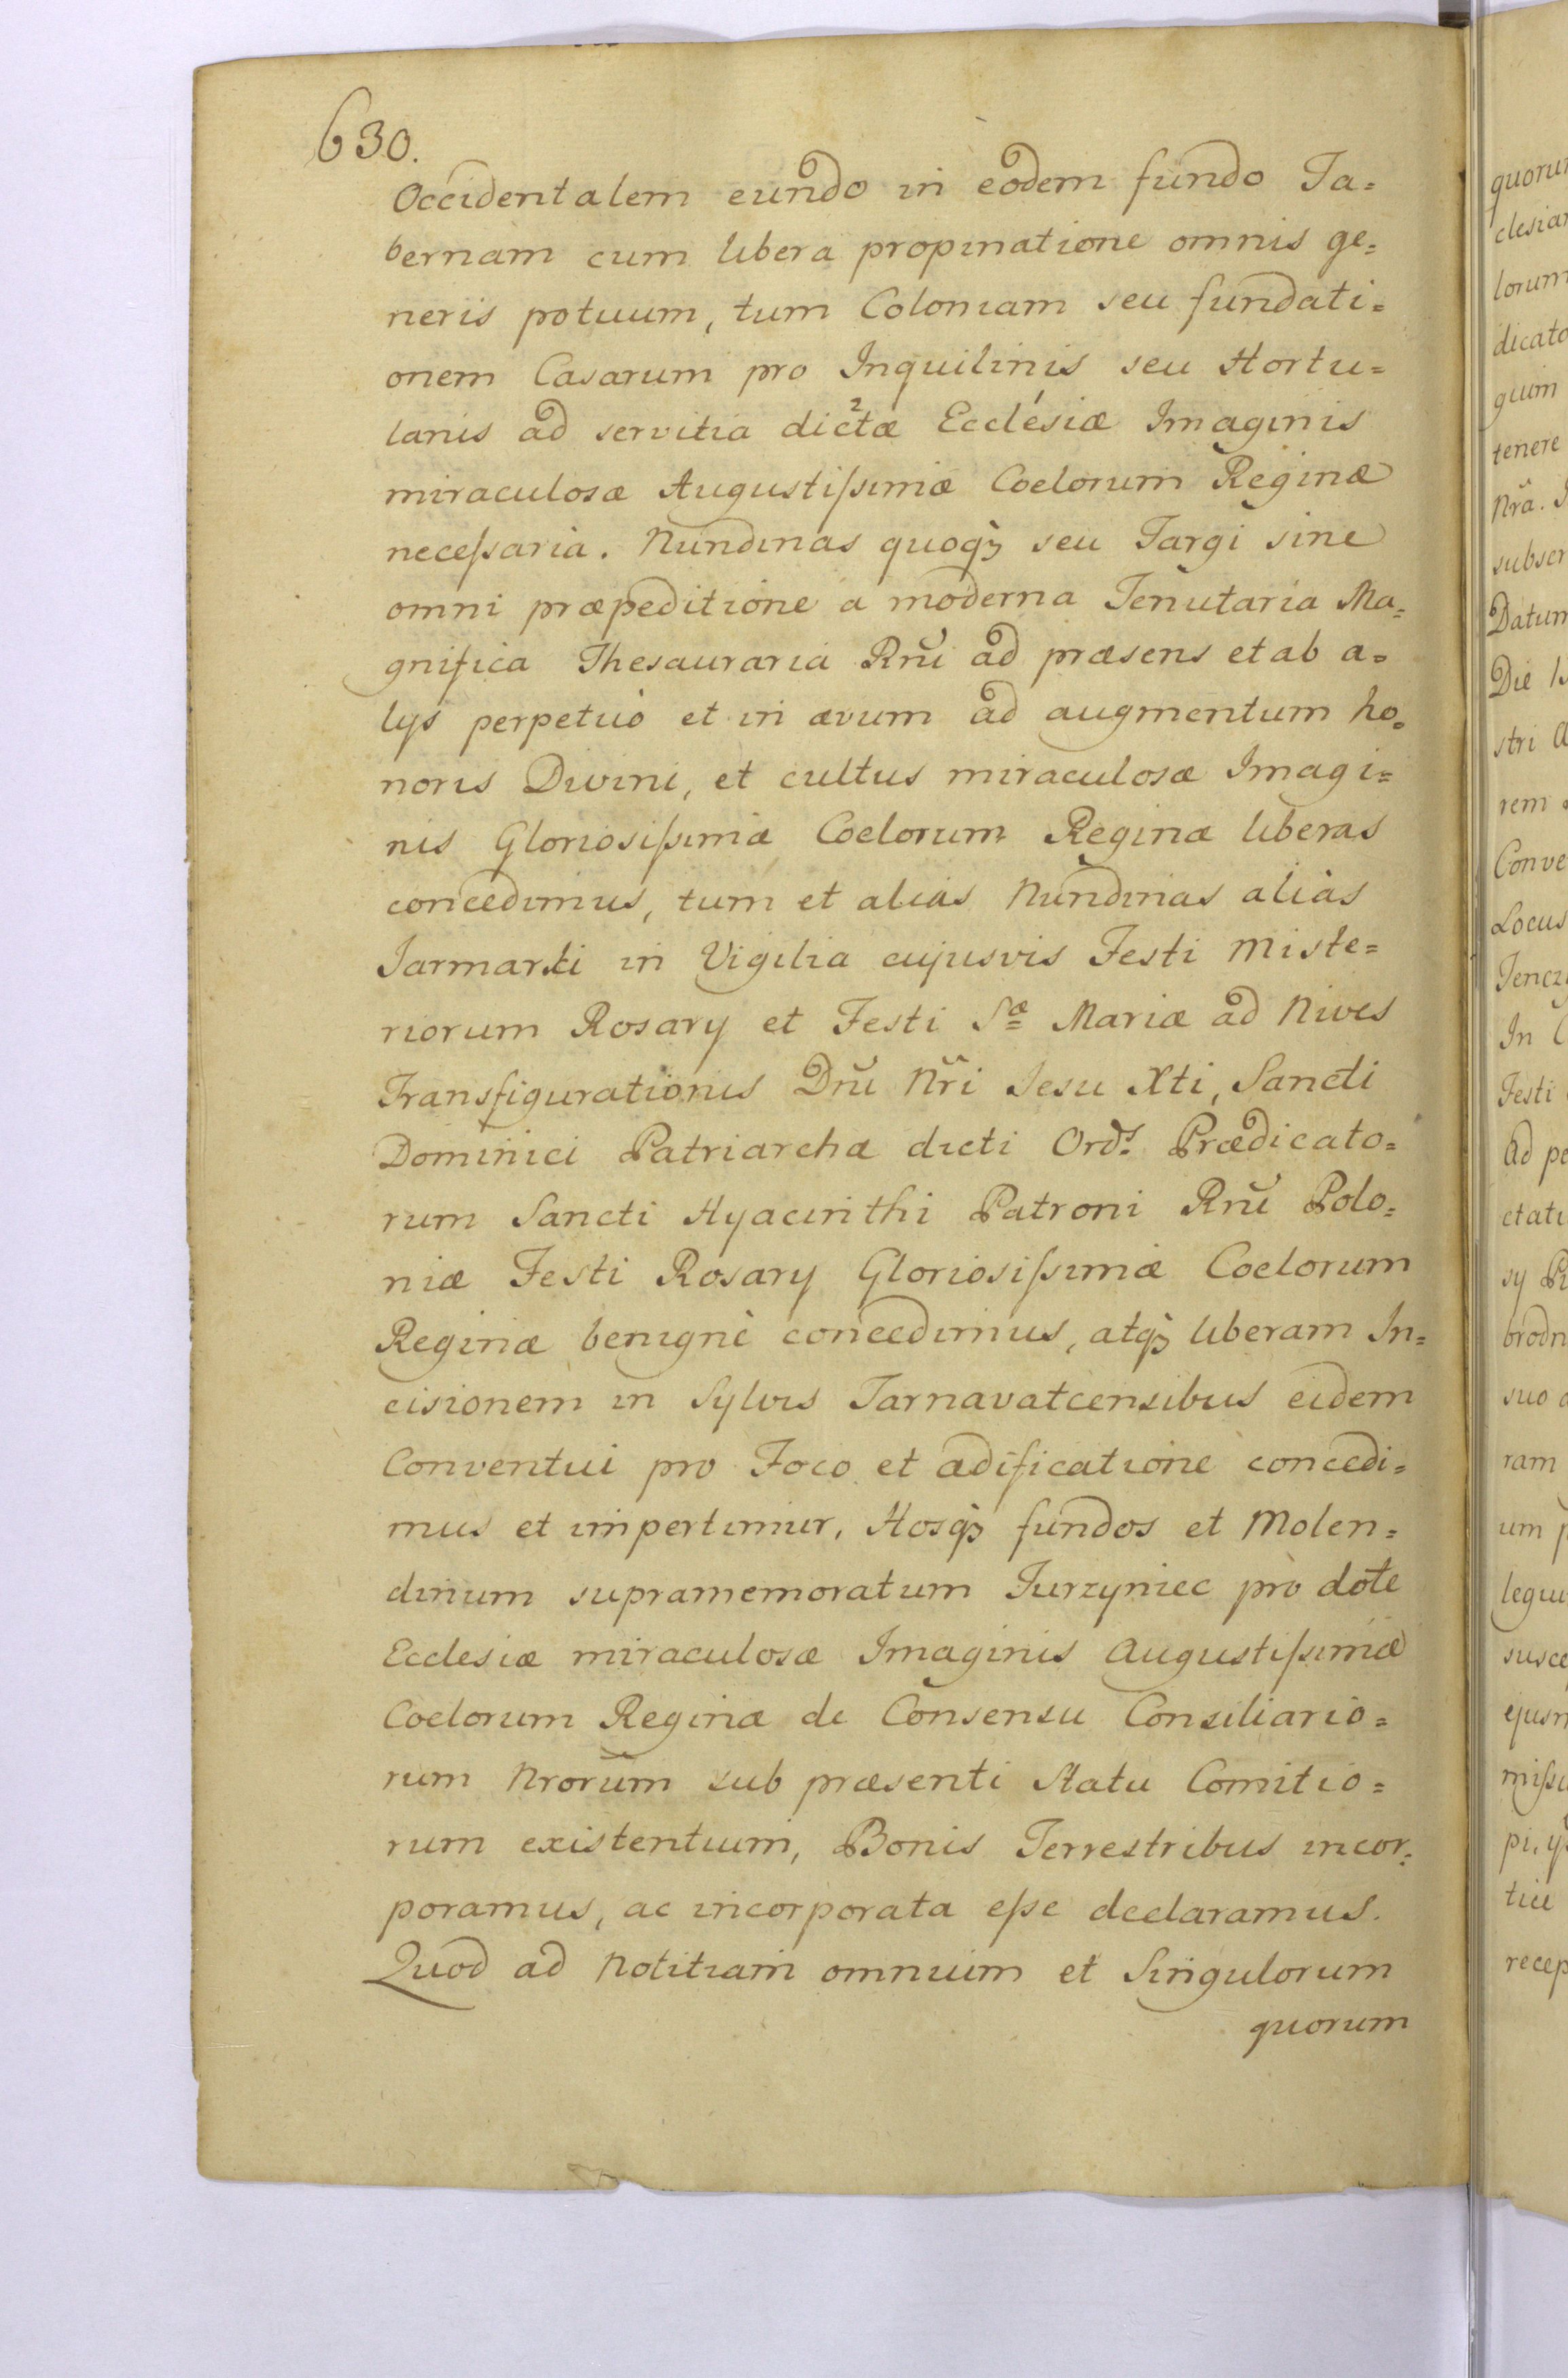 630.
Occidentalem eundo in eodem fundo Ta=
bernam cum libera propinatione omnis ge=
neris potuum, tum Coloniam seu fundati=
onem Casarum pro Inquilinis seu Hortu=
lanis ad servitia dictæ Ecclesiæ Imaginis
miraculosæ Augustißimæ Coelorum Reginæ
neceßaria. Nundinas quoqꝫ seu Targi sine
omni præpeditione a moderna Tenutaria Ma=
gnifica Thesauraria Rnĩ ad præsens et ab a=
lys perpetuò et in ævum ad augmentum ho=
noris Divini, et cultus miraculosæ Imagi=
nis Gloriosißimæ Coelorum Reginæ liberas
concedimus, tum et alias Nundinas aliàs
Jarmarki in Vigilia cujusvis Festi Miste=
riorum Rosary et Festi Sæ Mariæ ad Nives
Transfigurationis Dnĩ Nr̃i Jesu Xti, Sancti
Dominici Patriarchæ dicti Ords. Prædicato=
rum Sancti Hyacinthi Patroni Rnĩ Polo=
niæ Festi Rosary Gloriosißimæ Coelorum
Reginæ benignè concedimus, atqꝫ liberam In=
cisionem in Sylvis Tarnavatcensibus eidem
Conventui pro Foco et ædificatione concedi=
mus et impertimur, Hosqꝫ fundos et Molen=
dinum supramemoratum Jurzyniec pro dote
Ecclesiæ miraculosæ Imaginis Augustißimæ
Coelorum Reginæ de Consensu Consiliario=
rum Nror̃um sub præsenti Statu Comitio=
rum existentium, Bonis Terrestribus incor=
poramus, ac incorporata eße declaramus.
Quod ad Notitiam omnium et Singulorum
quorum